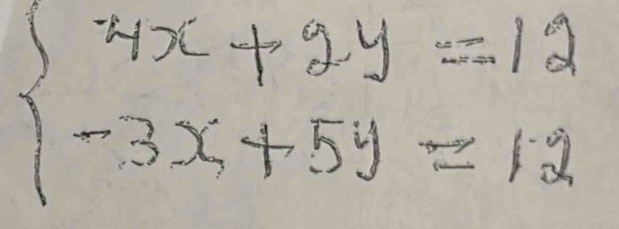 -4x + 2y = 12
-3x + 5y = 12